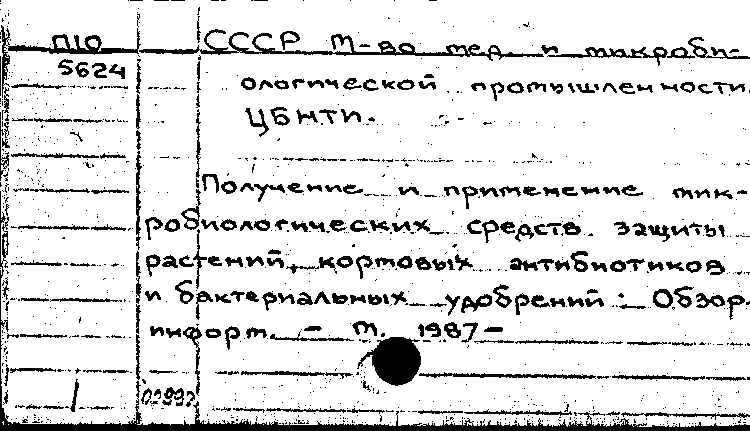 П10
СССР М-во мед. и микроби-
5624
ологической промышленности.
ЦБНТИ.
Получение и применение мик-
робиологических средств защиты
растений, кормовых антибиотиков
и бактериальных удобрений: Обзор.
информ. – М. 1987–
1